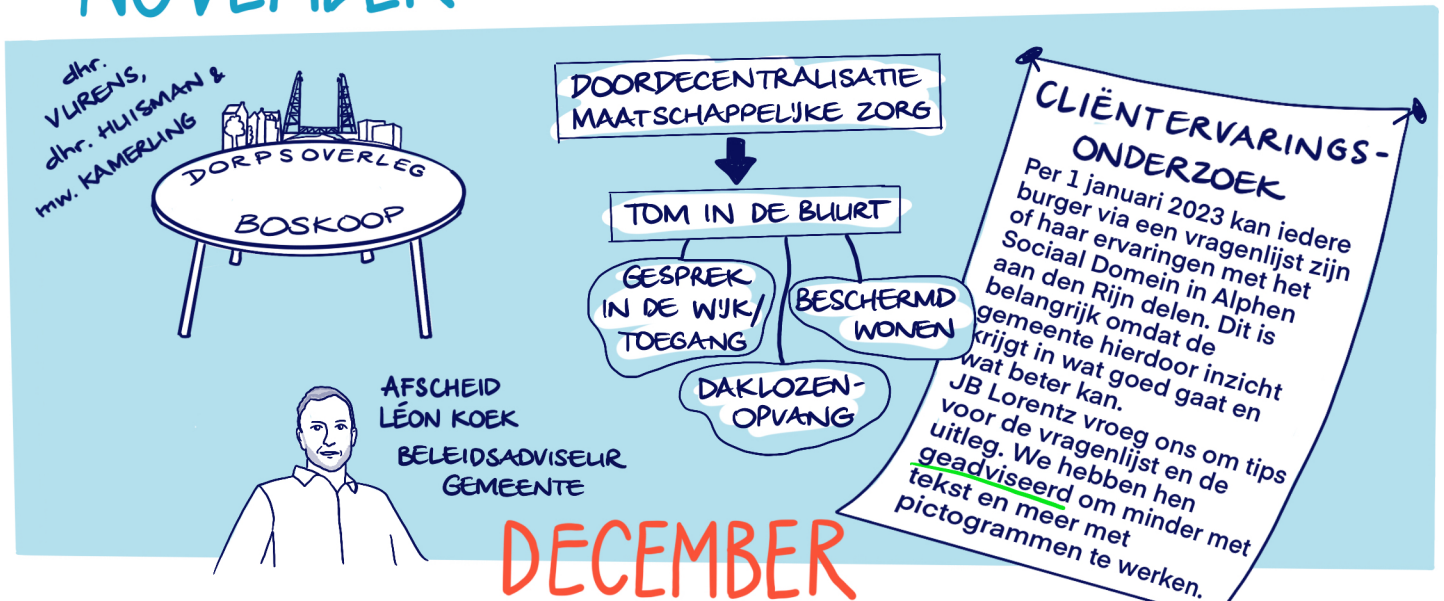 NOVEMBER
dhr.
VLIRENS,
dhr. HUISMAN &
mw. KAMERLING
DORPSOVERLEG
BOSKOOP
DOORDECENTRALISATIE
MAATSCHAPPELIJKE ZORG
TOM IN DE BUURT
GESPREK
IN DE WIJK/
TOEGANG
DAKLOZEN-
OPVANG
BESCHERMD
WONEN
AFSCHEID
LÉON KOEK
BELEIDSADVISEUR
GEMEENTE
CLIËNTERVARINGS-
ONDERZOEK
Per 1 januari 2023 kan iedere
burger via een vragenlijst zijn
of haar ervaringen met het
Sociaal Domein in Alphen
aan den Rijn delen. Dit is
belangrijk omdat de
gemeente hierdoor inzicht
krijgt in wat goed gaat en
wat beter kan.
JB Lorentz vroeg ons om tips
voor de vragenlijst en de
uitleg. We hebben hen
geadviseerd om minder met
tekst en meer met
pictogrammen te werken.
DECEMBER